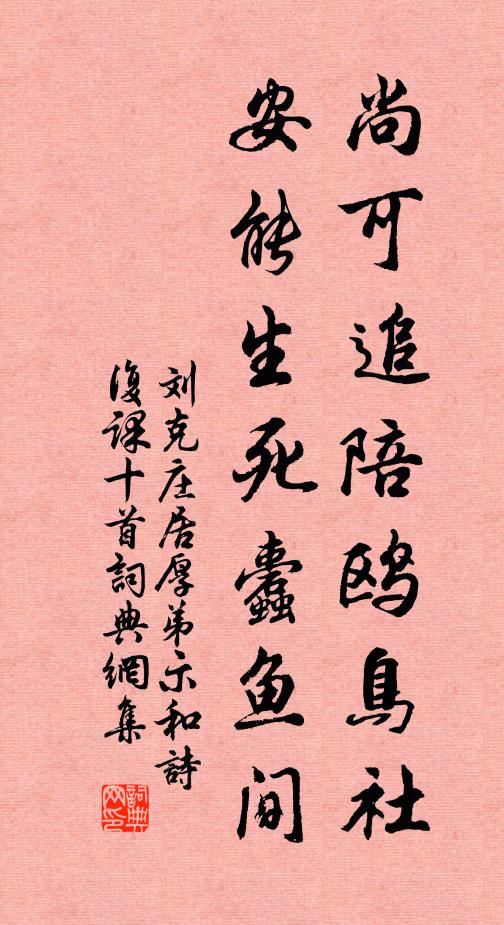 尚可追陪鸥鳥社
安能生死蠹鱼间
刘克庄居厚弟示和詩
復課十首詞典網集
詞典网印